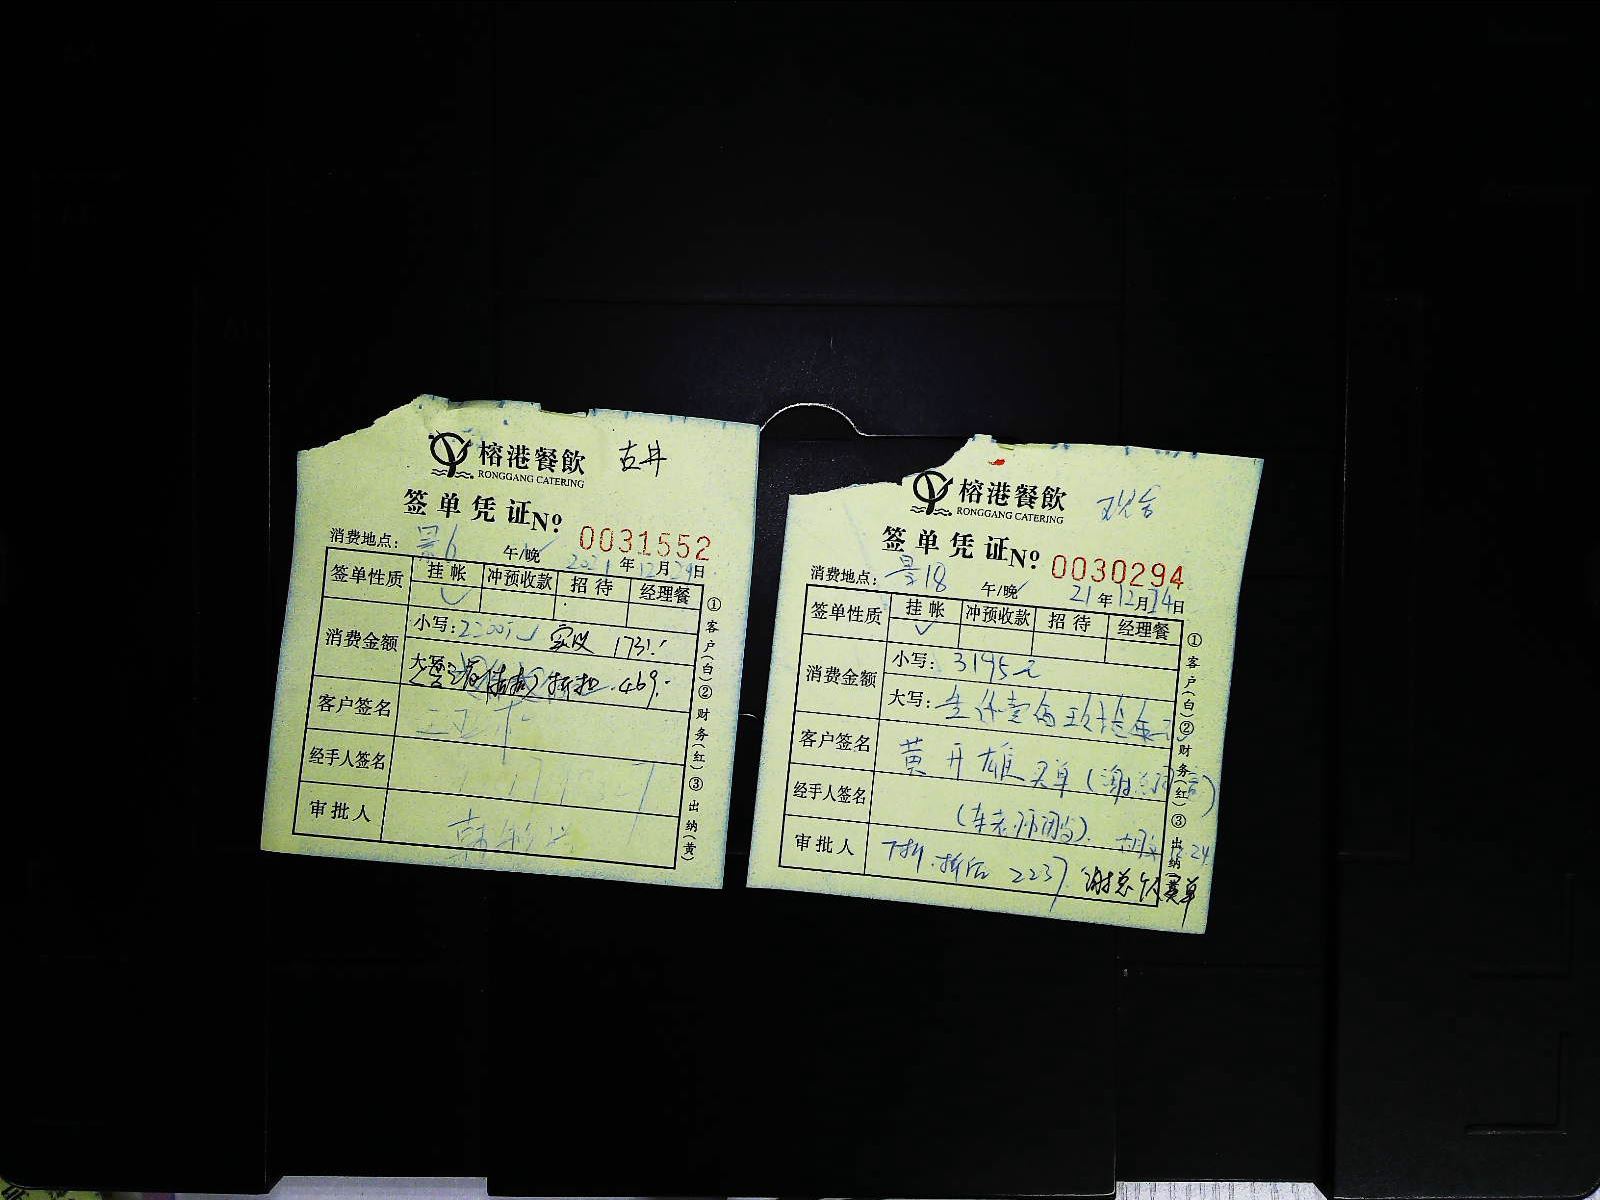 榕港餐飲 古井
RONGGANG CATERING
签单凭证 No. 0031552
消费地点: 景6 午/晚 2021年12月29日
签单性质 挂帐 冲预收款 招待 经理餐
消费金额 小写: 2200元 实收 1731.-
大写: 折扣.469.-
客户签名
经手人签名
审批人
①客户(白)②财务(红)③出纳(黄)
榕港餐飲
RONGGANG CATERING
签单凭证 No. 0030294
消费地点: 景18 午/晚 21年12月14日
签单性质 挂帐 冲预收款 招待 经理餐
消费金额 小写: 3195元
大写:
客户签名 黄开雄 (谢总
经手人签名 (车老师
审批人 7折.折后 2237. 谢总 单
①客户(白)②财务(红)③出纳(黄)